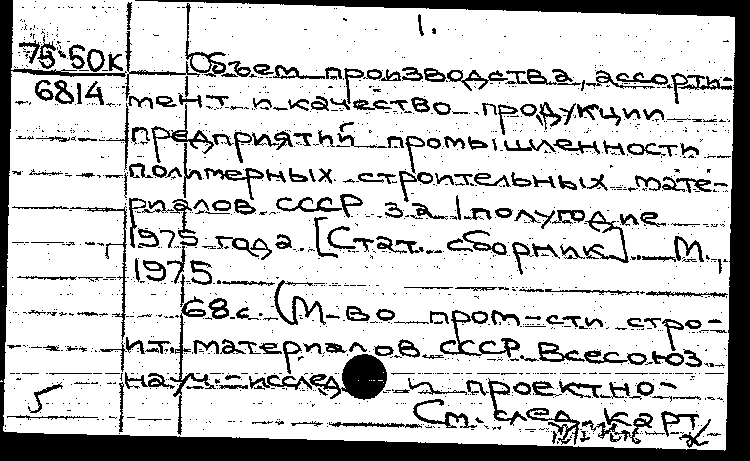 1.
75-50к
6814
Объем производства, ассорти-
мент и качество продукции
предприятий промышленности
полимерных строительных мате-
риалов СССР за 1 полугодие
1975 года. [Стат. сборник]. М.,
1975.
68с. (М-во пром-сти стро-
ит. материалов СССР. Всесоюз.
науч.-исслед. и проектно-
См. след. карт.
5